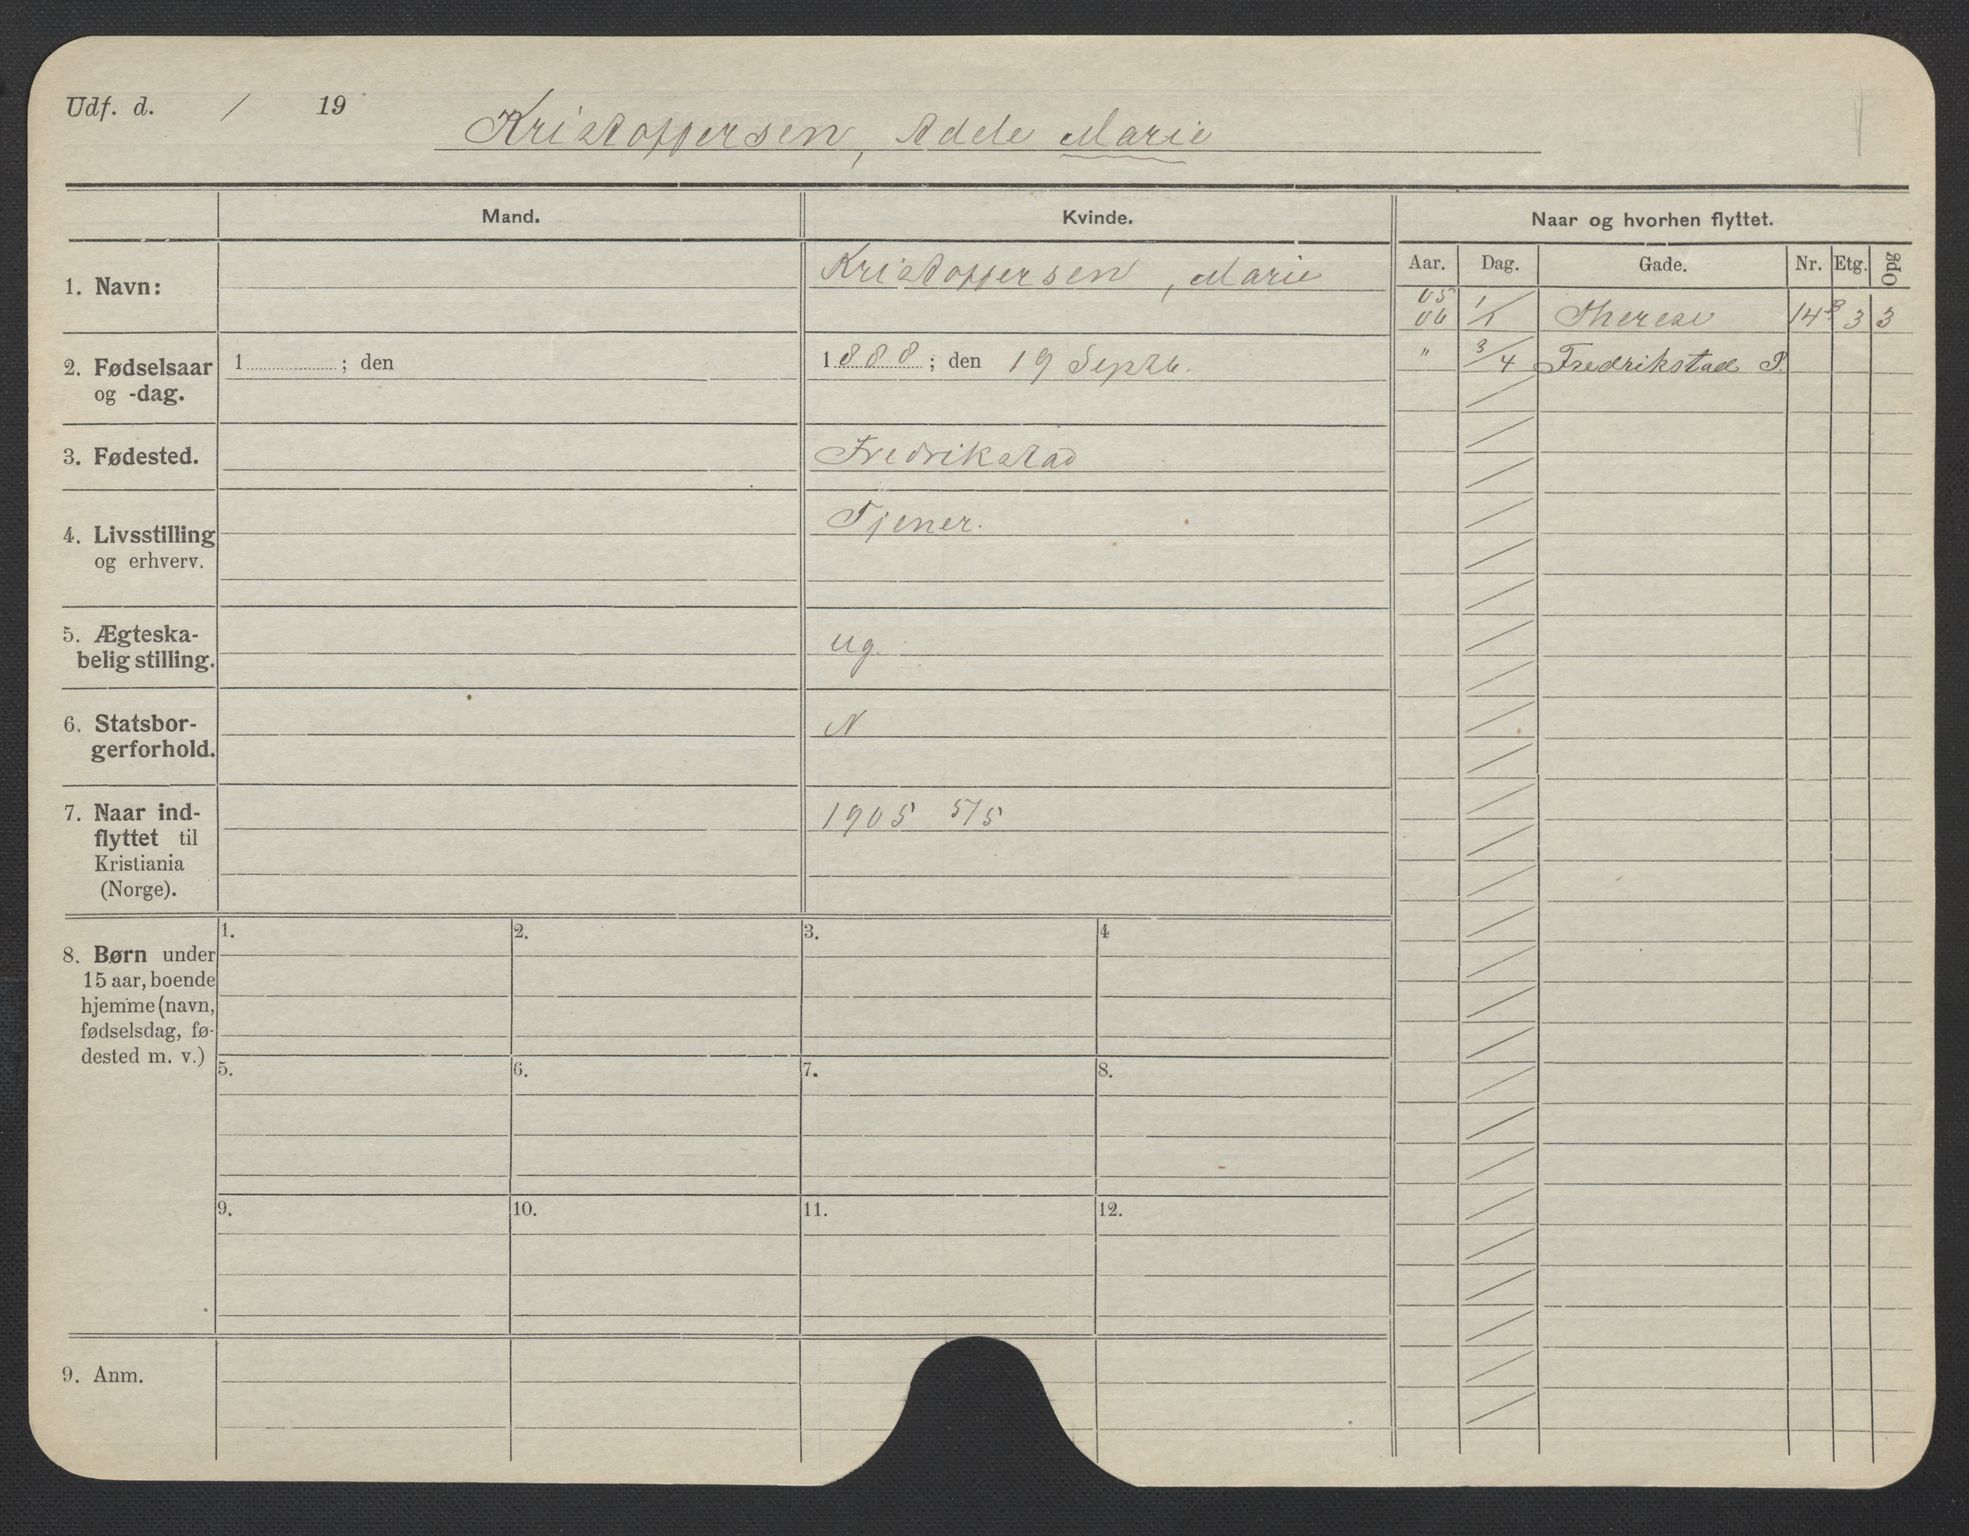 Udf. d. / 19
Kristoffersen, Adele Marie
Mand.
Kvinde.
Naar og hvorhen flyttet.
Aar. Dag. Gade. Nr. Etg. Opg
1. Navn:
Kristoffersen, Marie
05
06 1/1 Therese 14B 3 3
" 3/4 Fredrikstad P.
2. Fødselsaar
og -dag.
1 ; den
1888 ; den 19 Septb.
3. Fødested.
Fredrikstad
4. Livsstilling
og erhverv.
Tjener.
5. Ægteska-
belig stilling.
ug.
6. Statsbor-
gerforhold.
N
7. Naar ind-
flyttet til
Kristiania
(Norge).
1905 5/5
8. Børn under
15 aar, boende
hjemme (navn,
fødselsdag, fø-
dested m. v.)
1. 2. 3. 4
5. 6. 7. 8.
9. 10. 11. 12.
9. Anm.